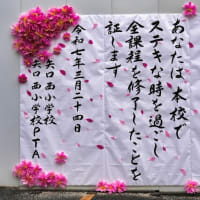 あなたは、本校で
ステキな時を過ごし
全課程を修了したことを
証します
令和七年三月二十四日
矢口西小学校
矢口西小学校PTA